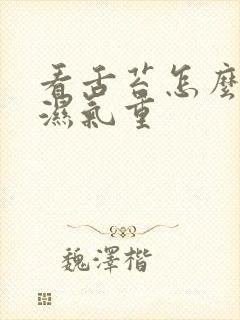 看舌苔怎麼
濕氣重
魏澤楷